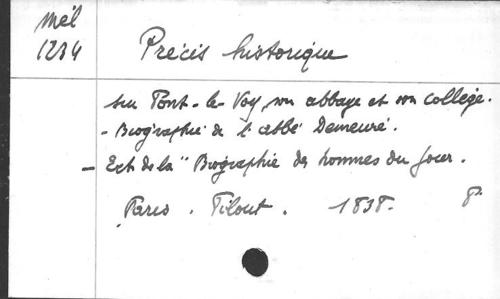 Mél
1234
Précis historique
sur Pont-le-Voy, son abbaye et son collège.
- Biographie de l'abbé Demeuré.
- Ext de la "Biographie des hommes du jour.
Paris. 1838. 8°.